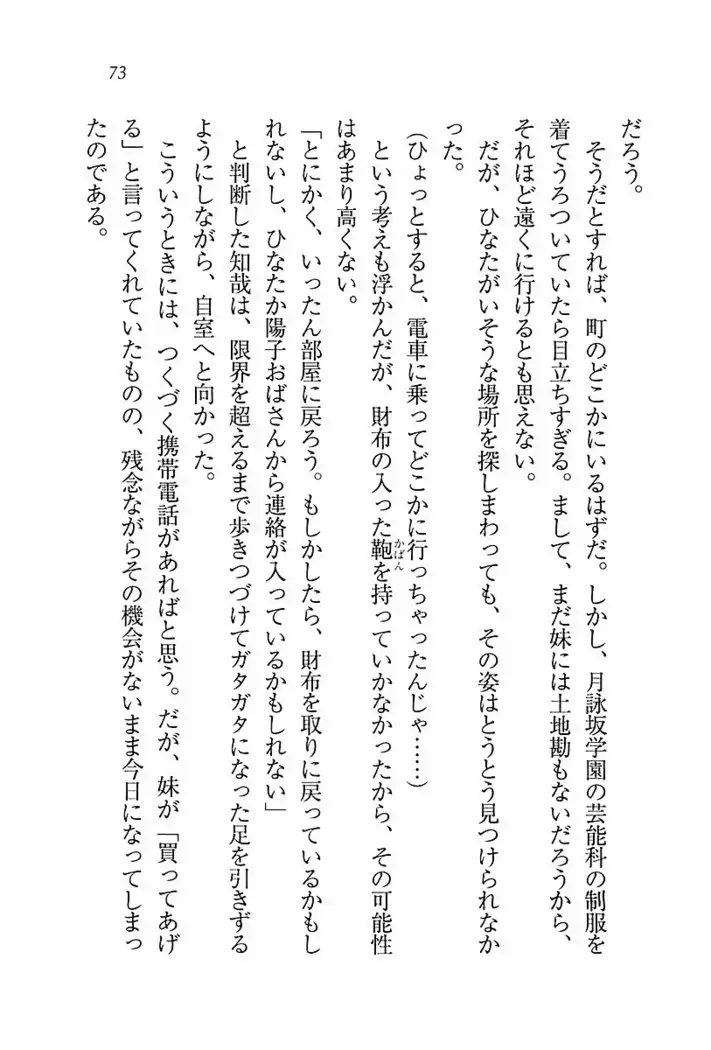 73
だろう。
　そうだとすれば、町のどこかにいるはずだ。しかし、月詠坂学園の芸能科の制服を
着てうろついていたら目立ちすぎる。まして、まだ妹には土地勘もないだろうから、
それほど遠くに行けるとも思えない。
　だが、ひなたがいそうな場所を探しまわっても、その姿はとうとう見つけられなか
った。
（ひょっとすると、電車に乗ってどこかに行っちゃったんじゃ……）
　という考えも浮かんだが、財布の入った鞄かばんを持っていかなかったから、その可能性
はあまり高くない。
「とにかく、いったん部屋に戻ろう。もしかしたら、財布を取りに戻っているかもし
れないし、ひなたか陽子おばさんから連絡が入っているかもしれない」
　と判断した知哉は、限界を超えるまで歩きつづけてガタガタになった足を引きずる
ようにしながら、自室へと向かった。
　こういうときには、つくづく携帯電話があればと思う。だが、妹が「買ってあげ
る」と言ってくれていたものの、残念ながらその機会がないまま今日になってしまっ
たのである。